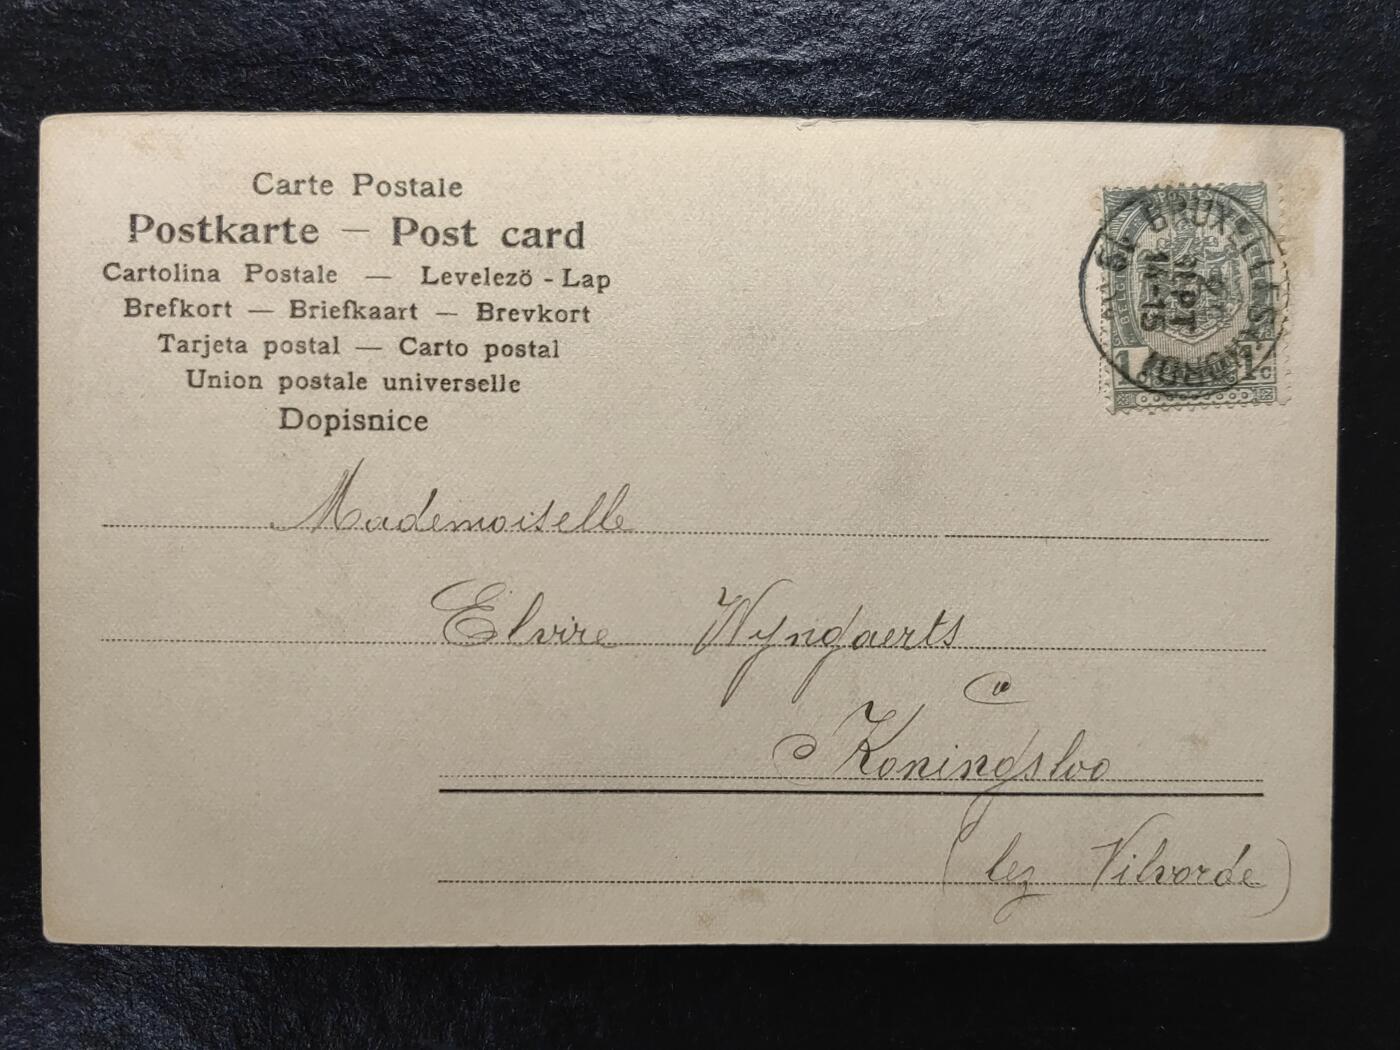 Carte Postale
Postkarte — Post card
Cartolina Postale — Levelezö - Lap
Brefkort — Briefkaart — Brevkort
Tarjeta postal — Carto postal
Union postale universelle
Dopisnice
BRUXELLES
SEPT
14-15
(NORD)
1 c 1 c
Mademoiselle
Elvire Wyngaerts
à
Koningsloo
(lez Vilvorde)